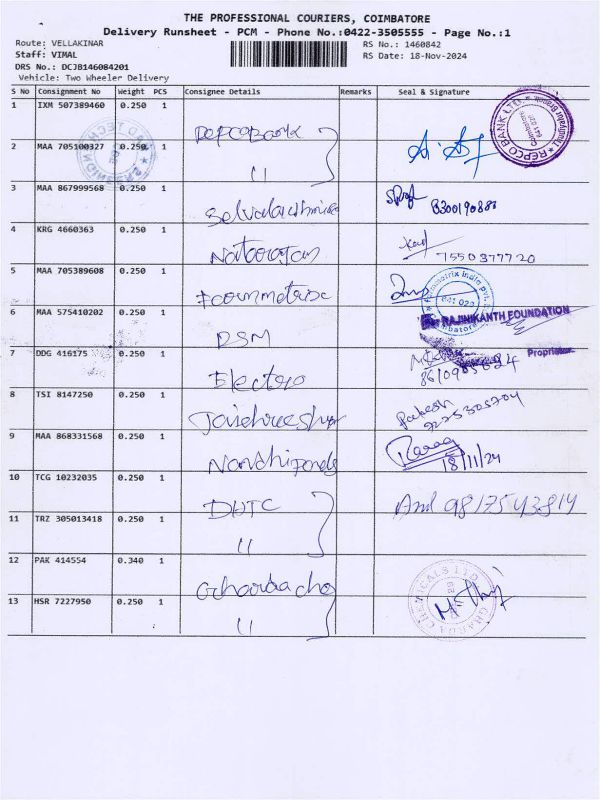 THE PROFESSIONAL COURIERS, COIMBATORE
Delivery Runsheet - PCM - Phone No.:0422-3505555 - Page No.:1
Route: VELLAKINAR
RS No.: 1460842
Staff: VIMAL
RS Date: 18-Nov-2024
DRS No.: DCJB146084201
Vehicle: Two Wheeler Delivery
S No Consignment No Weight PCS Consignee Details Remarks Seal & Signature
1 IXM 507389460 0.250 1 REPCO Bank
REPCO BANK LTD. Thudiyalur Branch Coimbatore
2 MAA 705100327 0.250 1 "
3 MAA 867999568 0.250 1 Selvalakshmi
4 KRG 4660363 0.250 1 Natarajan 7550377720
5 MAA 705389608 0.250 1
6 MAA 575410202 0.250 1 DSM
RAJINIKANTH FOUNDATION
Proprietor
7 DDG 416175 0.250 1 Electro
8 TSI 8147250 0.250 1 Rakesh
9 MAA 868331568 0.250 1 18/11/24
10 TCG 10232035 0.250 1 DHTC
11 TRZ 305013418 0.250 1 "
12 PAK 414554 0.340 1
GHARDA CHEMICALS LTD
13 HSR 7227950 0.250 1 "